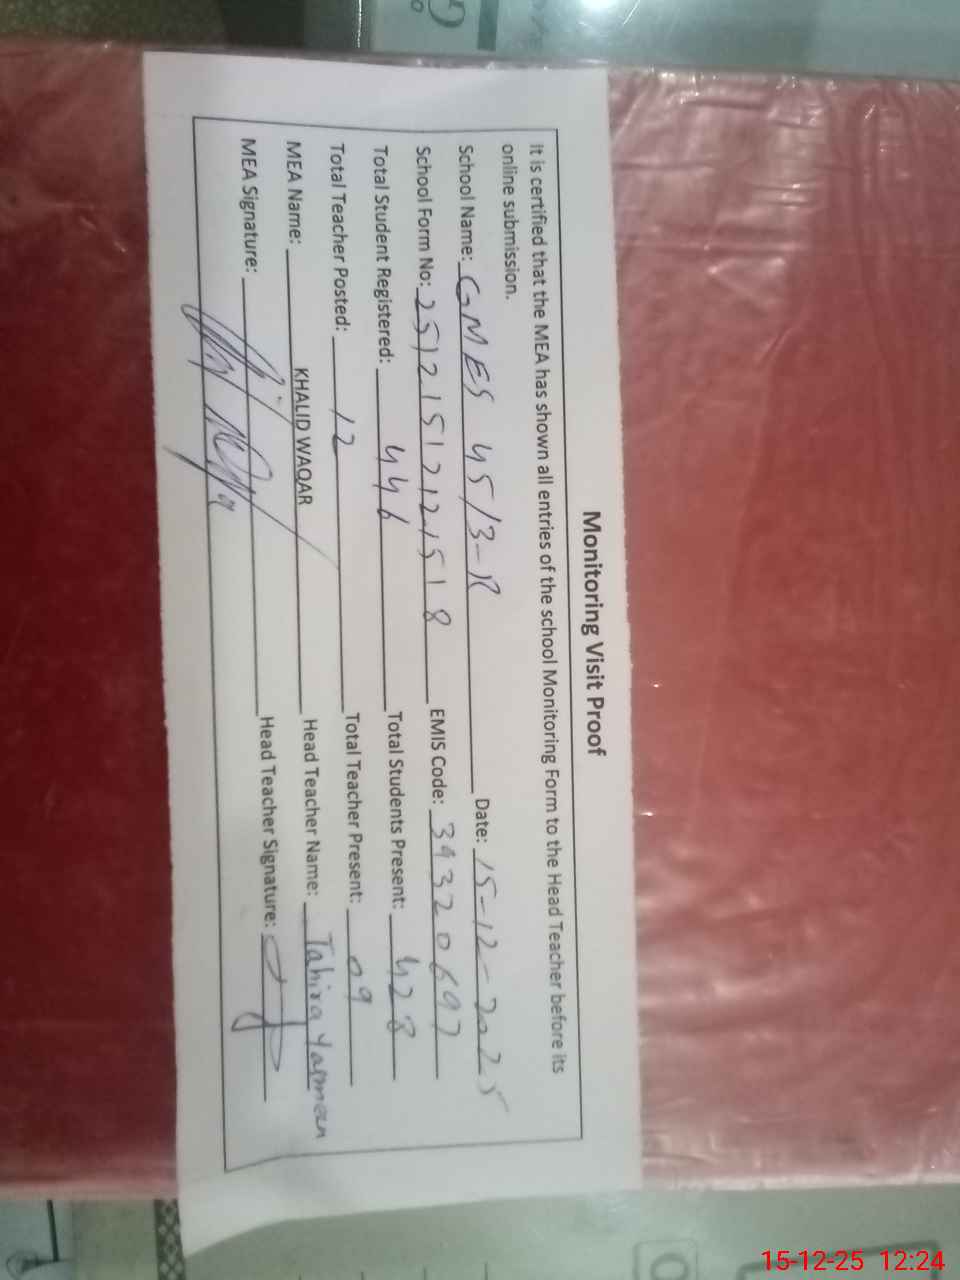 Monitoring Visit Proof
It is certified that the MEA has shown all entries of the school Monitoring Form to the Head Teacher before its
online submission.
School Name: GMES 45/3-R Date: 15-12-2025
School Form No: 25121512121518 EMIS Code: 39320697
Total Student Registered: 446 Total Students Present: 428
Total Teacher Posted: 12 Total Teacher Present: 09
MEA Name: KHALID WAQAR Head Teacher Name: Tahira Yasmeen
MEA Signature: Head Teacher Signature:
15-12-25 12:24